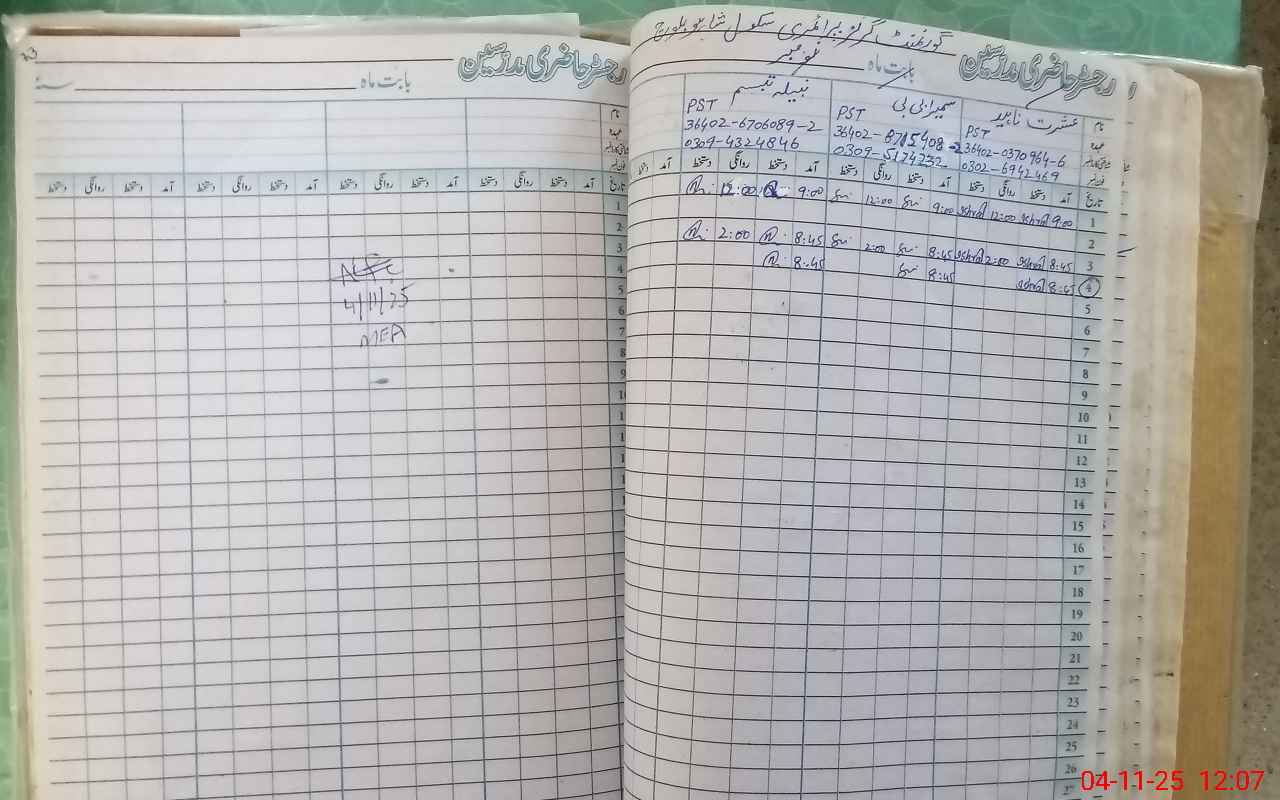 گورنمنٹ گرلز پرائمری سکول شاہو بلوچ
رجسٹر حاضری مدرسین
بابت ماہ نومبر
نام عشرت ناہید سمیرا بی بی نبیلہ تبسم
عہدہ PST PST PST
36402-0370964-6 36402-8715408-2 36402-6706089-2
0302-6942469 0309-5174232 0309-4324846
تاریخ آمد دستخط روانگی دستخط آمد دستخط روانگی دستخط آمد دستخط روانگی دستخط آمد دستخط
1 9:00 ishrat 12:00 ishrat 9:00 12:00 9:00 12:00
2
3 8:45 ishrat 2:00 ishrat 8:45 2:00 8:45 2:00
4 8:45 ishrat 8:45 8:45
5
6
7
8
9
10
11
12
13
14
15
16
17
18
19
20
21
22
23
24
25
26
27
رجسٹر حاضری مدرسین
بابت ماہ سنہ
نام
عہدہ
تاریخ آمد دستخط روانگی دستخط آمد دستخط روانگی دستخط آمد دستخط روانگی دستخط آمد دستخط روانگی دستخط
1
2
3
4
5
6
7
8
9
4/11/25
MEA
04-11-25 12:07